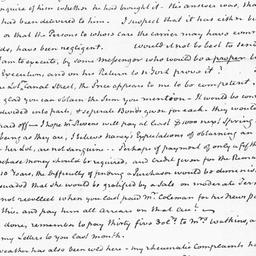 nquire of him whether he had brought it. His answer was, tha
had been delivered to him. I suspect that it has either be
or that the Persons to whose care the carrier may have com
ds, have been negligent. would it not be best to send
am to execute, by some Messenger who would be a proper
Execution, and on his Return to N York prove it?
Lot, Canal Street, the Price appears to me to be competent
glad you can obtain the Sum you mention - It would be con
divided into parts, & separate Bonds given for each. they would
aid off - I hope Mr Stevens will pay at least Spring
being as they are, I believe Nancy's Expectations of obtaining an
her Lot, are not sanguine. Perhaps if payment of only a
chase money should be required, and credit given for the Rema
10 Years, the Difficulty of finding a Purchaser would be diminis
suaded that she would be gratified by a Sale on moderate Term
not recollect when you last paid Mr. Coleman for his News pa
this, and pay him all arrears on that acct.
done, remember to pay thirty five Dolls. to Mrs. Watkins, a
my Letters to you last month.
weather has also been cold here - my rheumatic complaints ha